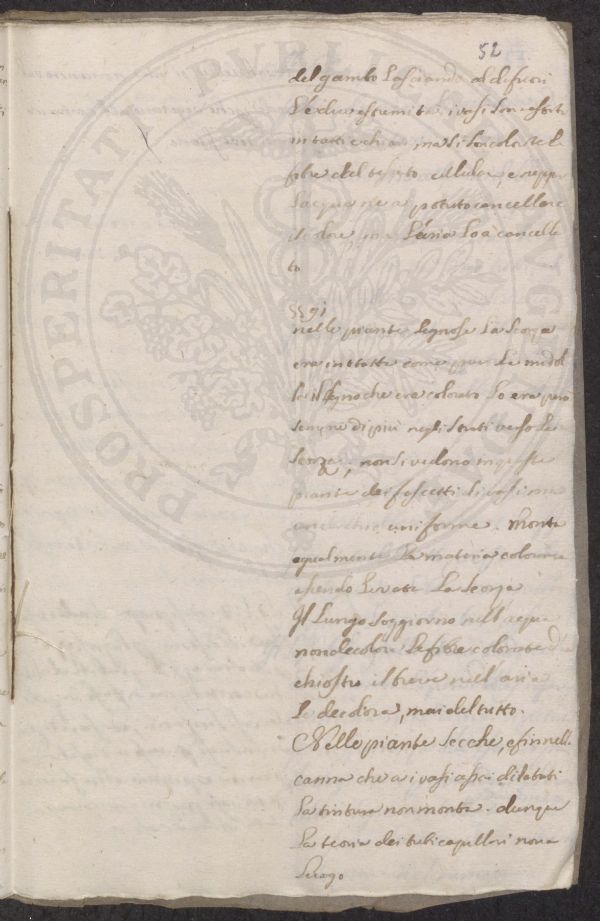 52
del gambo Lasciando al di fuori
L'extra estremità i vasi son
in tatti e chia ma si son colorate le
fibre del tessuto cellular, e neppur
L'acqua ne a potuto cancellare
il colore, ma L'aria Lo a cancella
to
§§91
nelle piante Legnose La Scorza
era intatta come pure La midol
la il Legno che era colorato Lo era però
sempre di più negli strati verso La
Scorza, non si vedono in queste
piante dei fascetti di vasi ma
una uniforme. Monta
egualmente La materia colorante
essendo Levata La Scorza
Il Lungo Soggiorno nell'acqua
non decolora Le fibre colorate d'in
chiostro il breve nell'aria
Le decolora, mai del tutto.
Nelle piante Secche, e fin nella
canna che a i vasi assai dilatati
La tintura non monta. dunque
La teoria dei tubi capillari non a
Luogo
PROSPERITAT PVBLI AVG